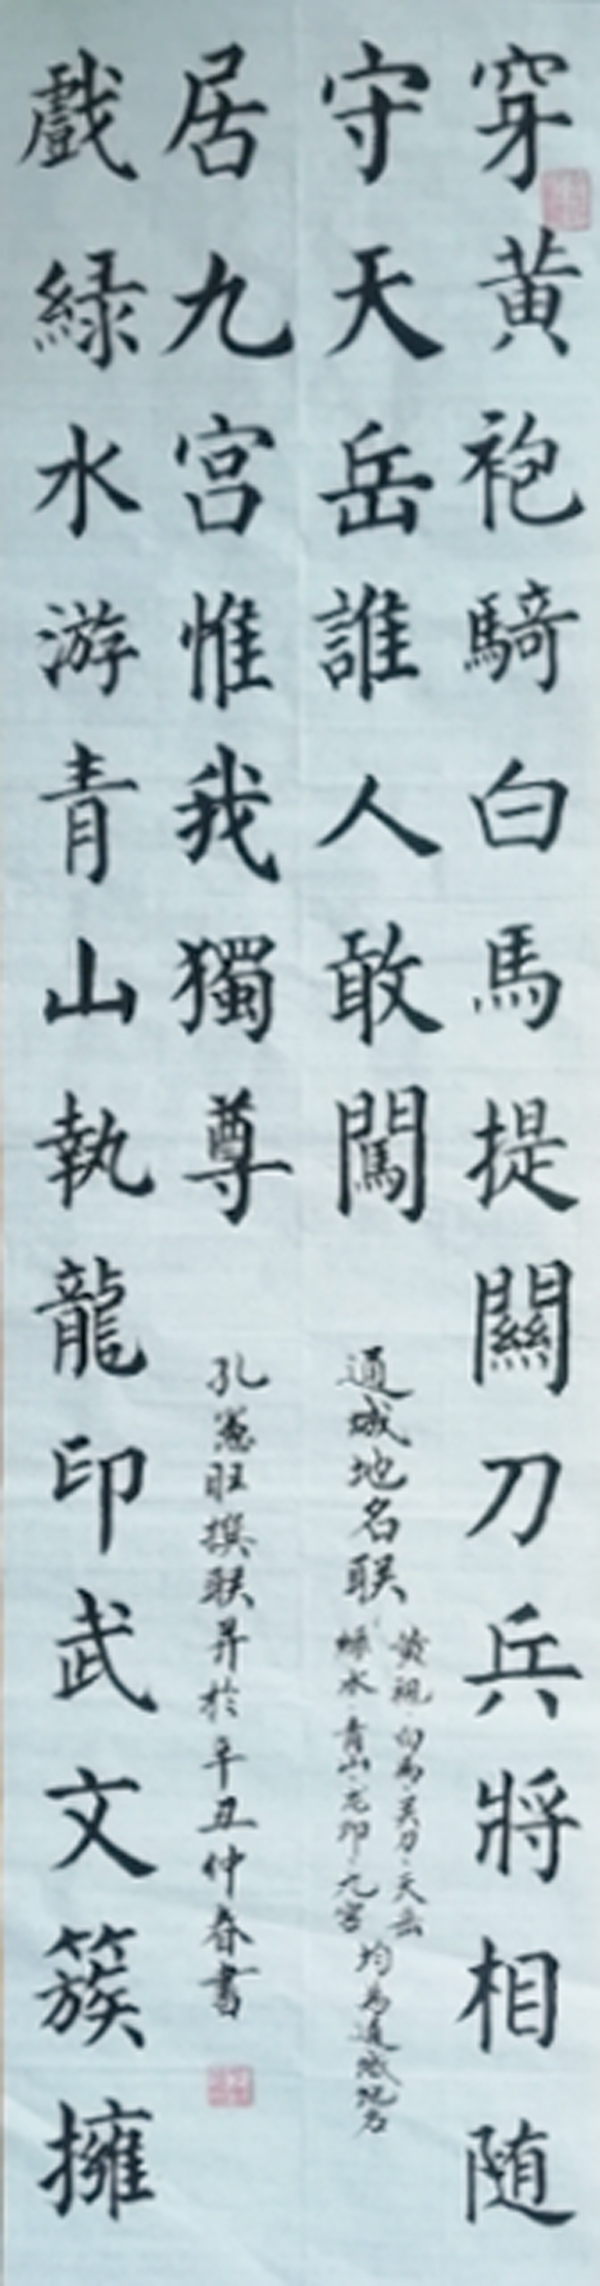 穿黄袍騎白馬提關刀兵將相随
守天岳誰人敢闖
通城地名联
黄袍·白马·关刀·天岳
緑水·青山·龙印·九宫
均为通城地名
戲緑水游青山執龍印武文簇擁
居九宫惟我獨尊
孔憲旺撰联并於辛丑仲春書